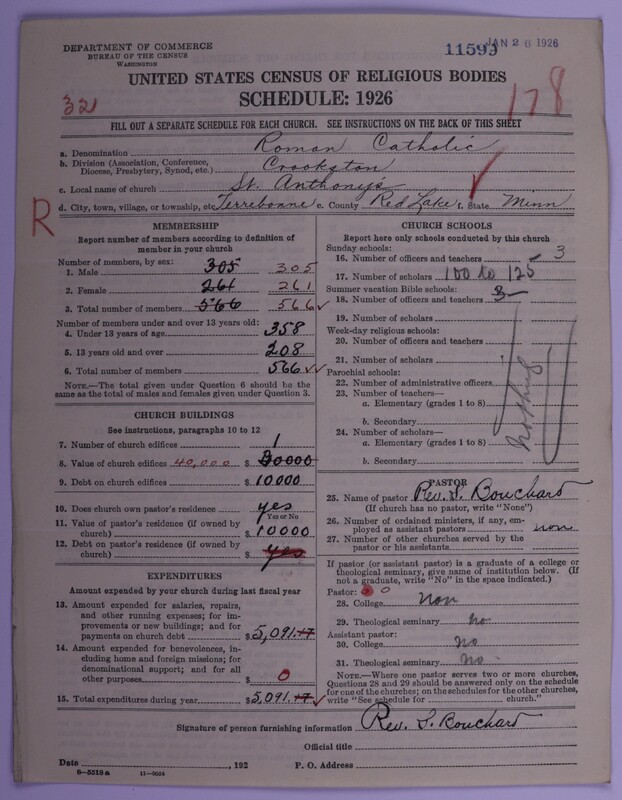 DEPARTMENT OF COMMERCE
BUREAU OF THE CENSUS
WASHINGTON
11599 JAN 26 1926
UNITED STATES CENSUS OF RELIGIOUS BODIES
SCHEDULE: 1926
321
178
FILL OUT A SEPARATE SCHEDULE FOR EACH CHURCH. SEE INSTRUCTIONS ON THE BACK OF THIS SHEET
a. Denomination Roman Catholic
b. Division (Association, Conference, Diocese, Presbytery, Synod, etc.) Crookston
c. Local name of church St. Anthony's
d. City, town, village, or township, etc Terrebonne e. County Red Lake f. State Minn
R
MEMBERSHIP
Report number of members according to definition of
member in your church
Number of members, by sex:
1. Male 305 305
2. Female 261 261
3. Total number of members 566 566
Number of members under and over 13 years old:
4. Under 13 years of age 358
5. 13 years old and over 208
6. Total number of members 566
NOTE.—The total given under Question 6 should be
same as the total of males and females given under Question 3.
CHURCH BUILDINGS
See instructions, paragraphs 10 to 12
7. Number of church edifices 1
8. Value of church edifices 40,000 $ 30000
9. Debt on church edifices $ 10000
10. Does church own pastor's residence yes
Yes or No
11. Value of pastor's residence (if owned by
church) $ 10000
12. Debt on pastor's residence (if owned by
church) $ yes
EXPENDITURES
Amount expended by your church during last fiscal year
13. Amount expended for salaries, repairs,
and other running expenses; for im-
provements or new buildings; and for
payments on church debt $5,091.17
14. Amount expended for benevolences, in-
cluding home and foreign missions; for
denominational support; and for all
other purposes $ 0
15. Total expenditures during year $5,091.17
CHURCH SCHOOLS
Report here only schools conducted by this church
Sunday schools:
16. Number of officers and teachers 3
17. Number of scholars 100 to 125
Summer vacation Bible schools:
18. Number of officers and teachers 3
19. Number of scholars
Week-day religious schools:
20. Number of officers and teachers
21. Number of scholars
Parochial schools:
22. Number of administrative officers
23. Number of teachers—
a. Elementary (grades 1 to 8)
b. Secondary
24. Number of scholars—
a. Elementary (grades 1 to 8)
b. Secondary
nothing
PASTOR
25. Name of pastor Rev. S. Bouchard
(If church has no pastor, write "None")
26. Number of ordained ministers, if any, em-
ployed as assistant pastors non
27. Number of other churches served by the
pastor or his assistants
If pastor (or assistant pastor) is a graduate of a college or
theological seminary, give name of institution below. (If
not a graduate, write "No" in the space indicated.)
Pastor: 0
28. College non
29. Theological seminary no
Assistant pastor:
30. College No
31. Theological seminary no
NOTE.—Where one pastor serves two or more churches,
Questions 28 and 29 should be answered only on the schedule
for one of the churches; on the schedules for the other churches,
write "See schedule for church."
Signature of person furnishing information Rev. S. Bouchard
Official title
Date , 192 P. O. Address
6—5519a 11—9054